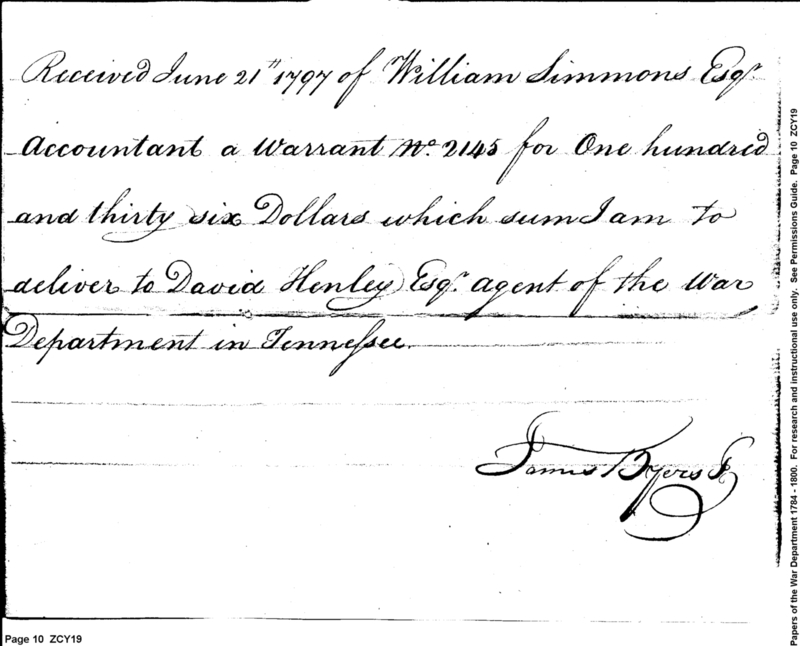 Received June 21st 1797 of William Simmons Esqr.
Accountant a Warrant No. 2145 for One hundred
and thirty six Dollars which sum I am to
deliver to David Henley Esqr. agent of the War
Department in Tennessee.
James Byers Jr
Page 10 ZCY19
Papers of the War Department 1784 - 1800. For research and instructional use only. See Permissions Guide. Page 10 ZCY19